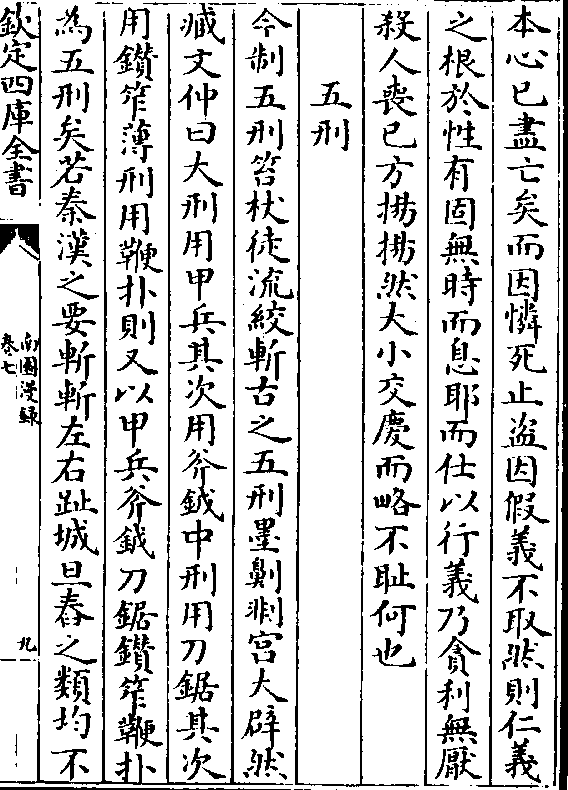 本心已盡亡矣而因憐死止盜因假義不取然則仁義
之根於性有固無時而息耶而仕以行義乃貪利無厭
殺人喪已方揚揚然大小交慶而略不耻何也
五刑
今制五刑笞杖徒流絞斬古之五刑墨劓剕宫大辟然
臧文仲曰大刑用甲兵其次用斧鉞中刑用刀鋸其次
用鑚笮薄刑用鞭扑則又以甲兵斧鉞刀鋸鑚笮鞭扑
為五刑矣若秦漢之要斬斬左右趾城旦舂之類均不
欽定四庫全書
南園漫録
卷七
九